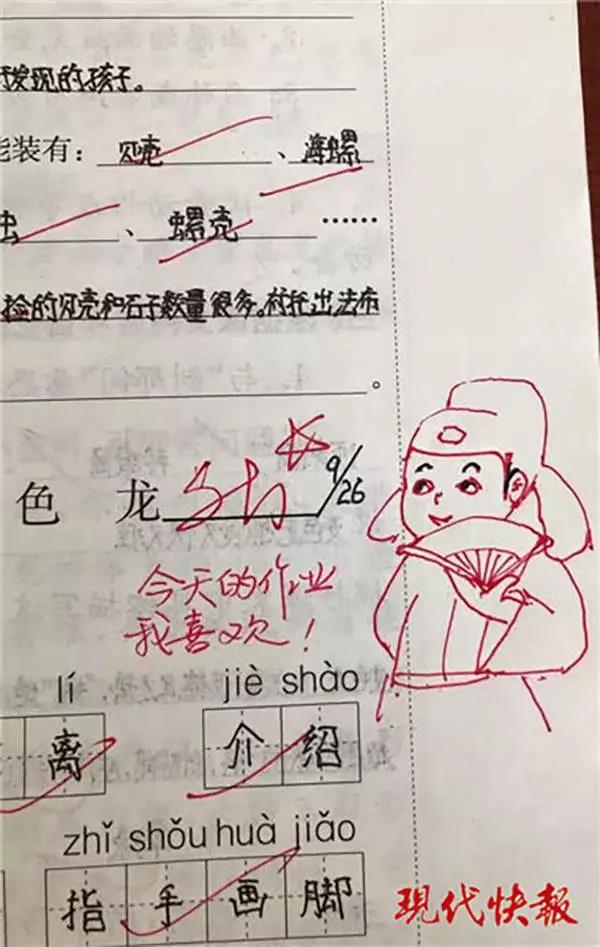 发现的孩子。
能装有：贝壳、海螺
虫、螺壳……
捡的贝壳和石子数量很多。
。
色 龙 9/26
今天的作业
我喜欢！
lí jiè shào
离 介绍
zhǐ shǒu huà jiǎo
指手画脚
現代快報